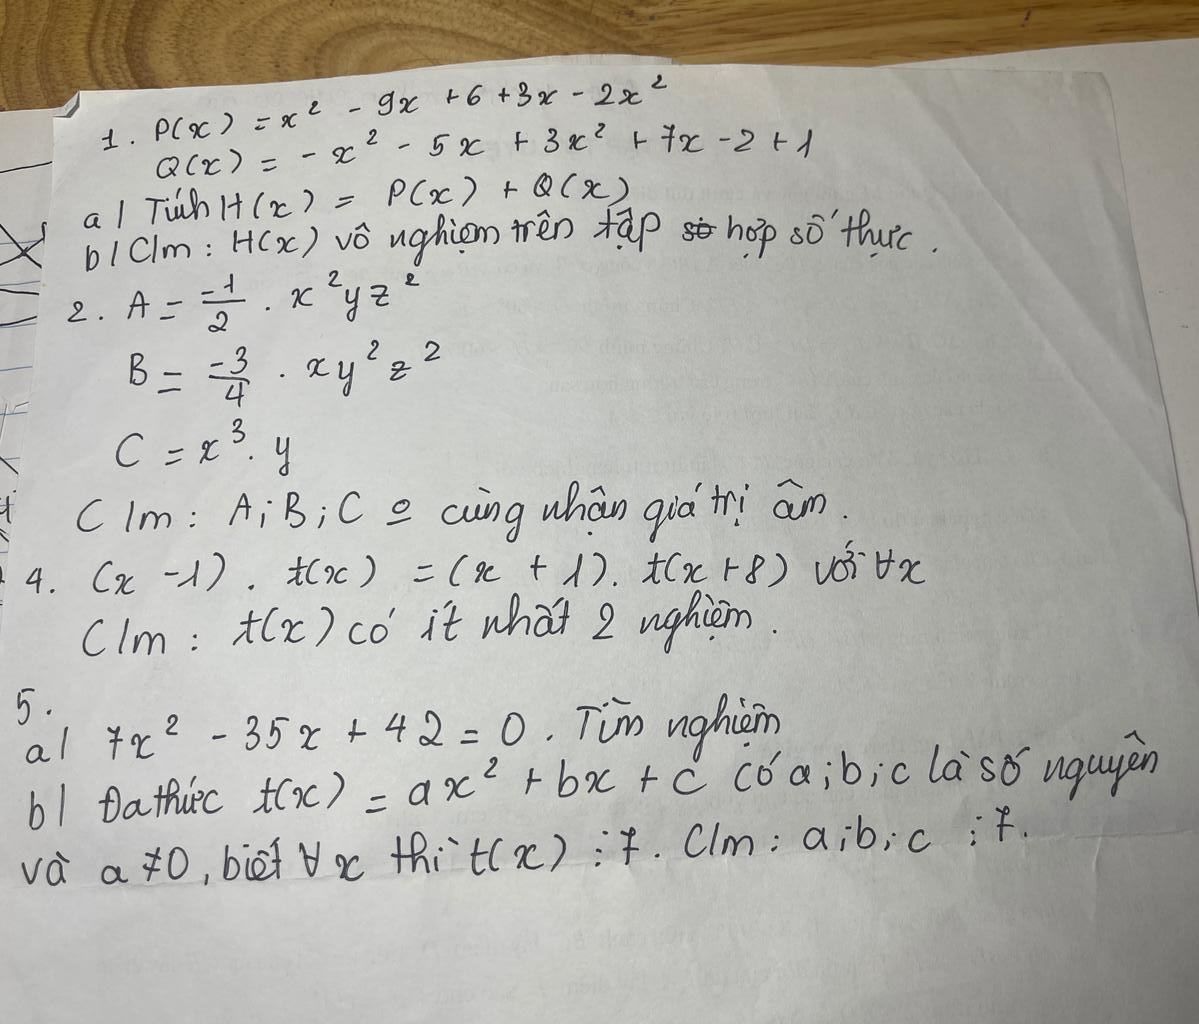 1. P(x) = x² - 9x + 6 + 3x - 2x²
Q(x) = - x² - 5x + 3x² + 7x - 2 + 1
a/ Tính H(x) = P(x) + Q(x)
b/ C/m : H(x) vô nghiệm trên tập hợp số thực.
2. A = -1/2 . x²yz²
B = -3/4 . xy²z²
C = x³. y
C/m : A ; B ; C o cùng nhận giá trị âm.
4. (x - 1) . t(x) = (x + 1). t(x + 8) với ∀x
C/m : t(x) có ít nhất 2 nghiệm.
5.
a/ 7x² - 35x + 42 = 0 . Tìm nghiệm
b/ Đa thức t(x) = ax² + bx + c có a ; b ; c là số nguyên
và a ≠ 0 , biết ∀ x thì t(x) ⋮ 7. C/m : a ; b ; c ⋮ 7.